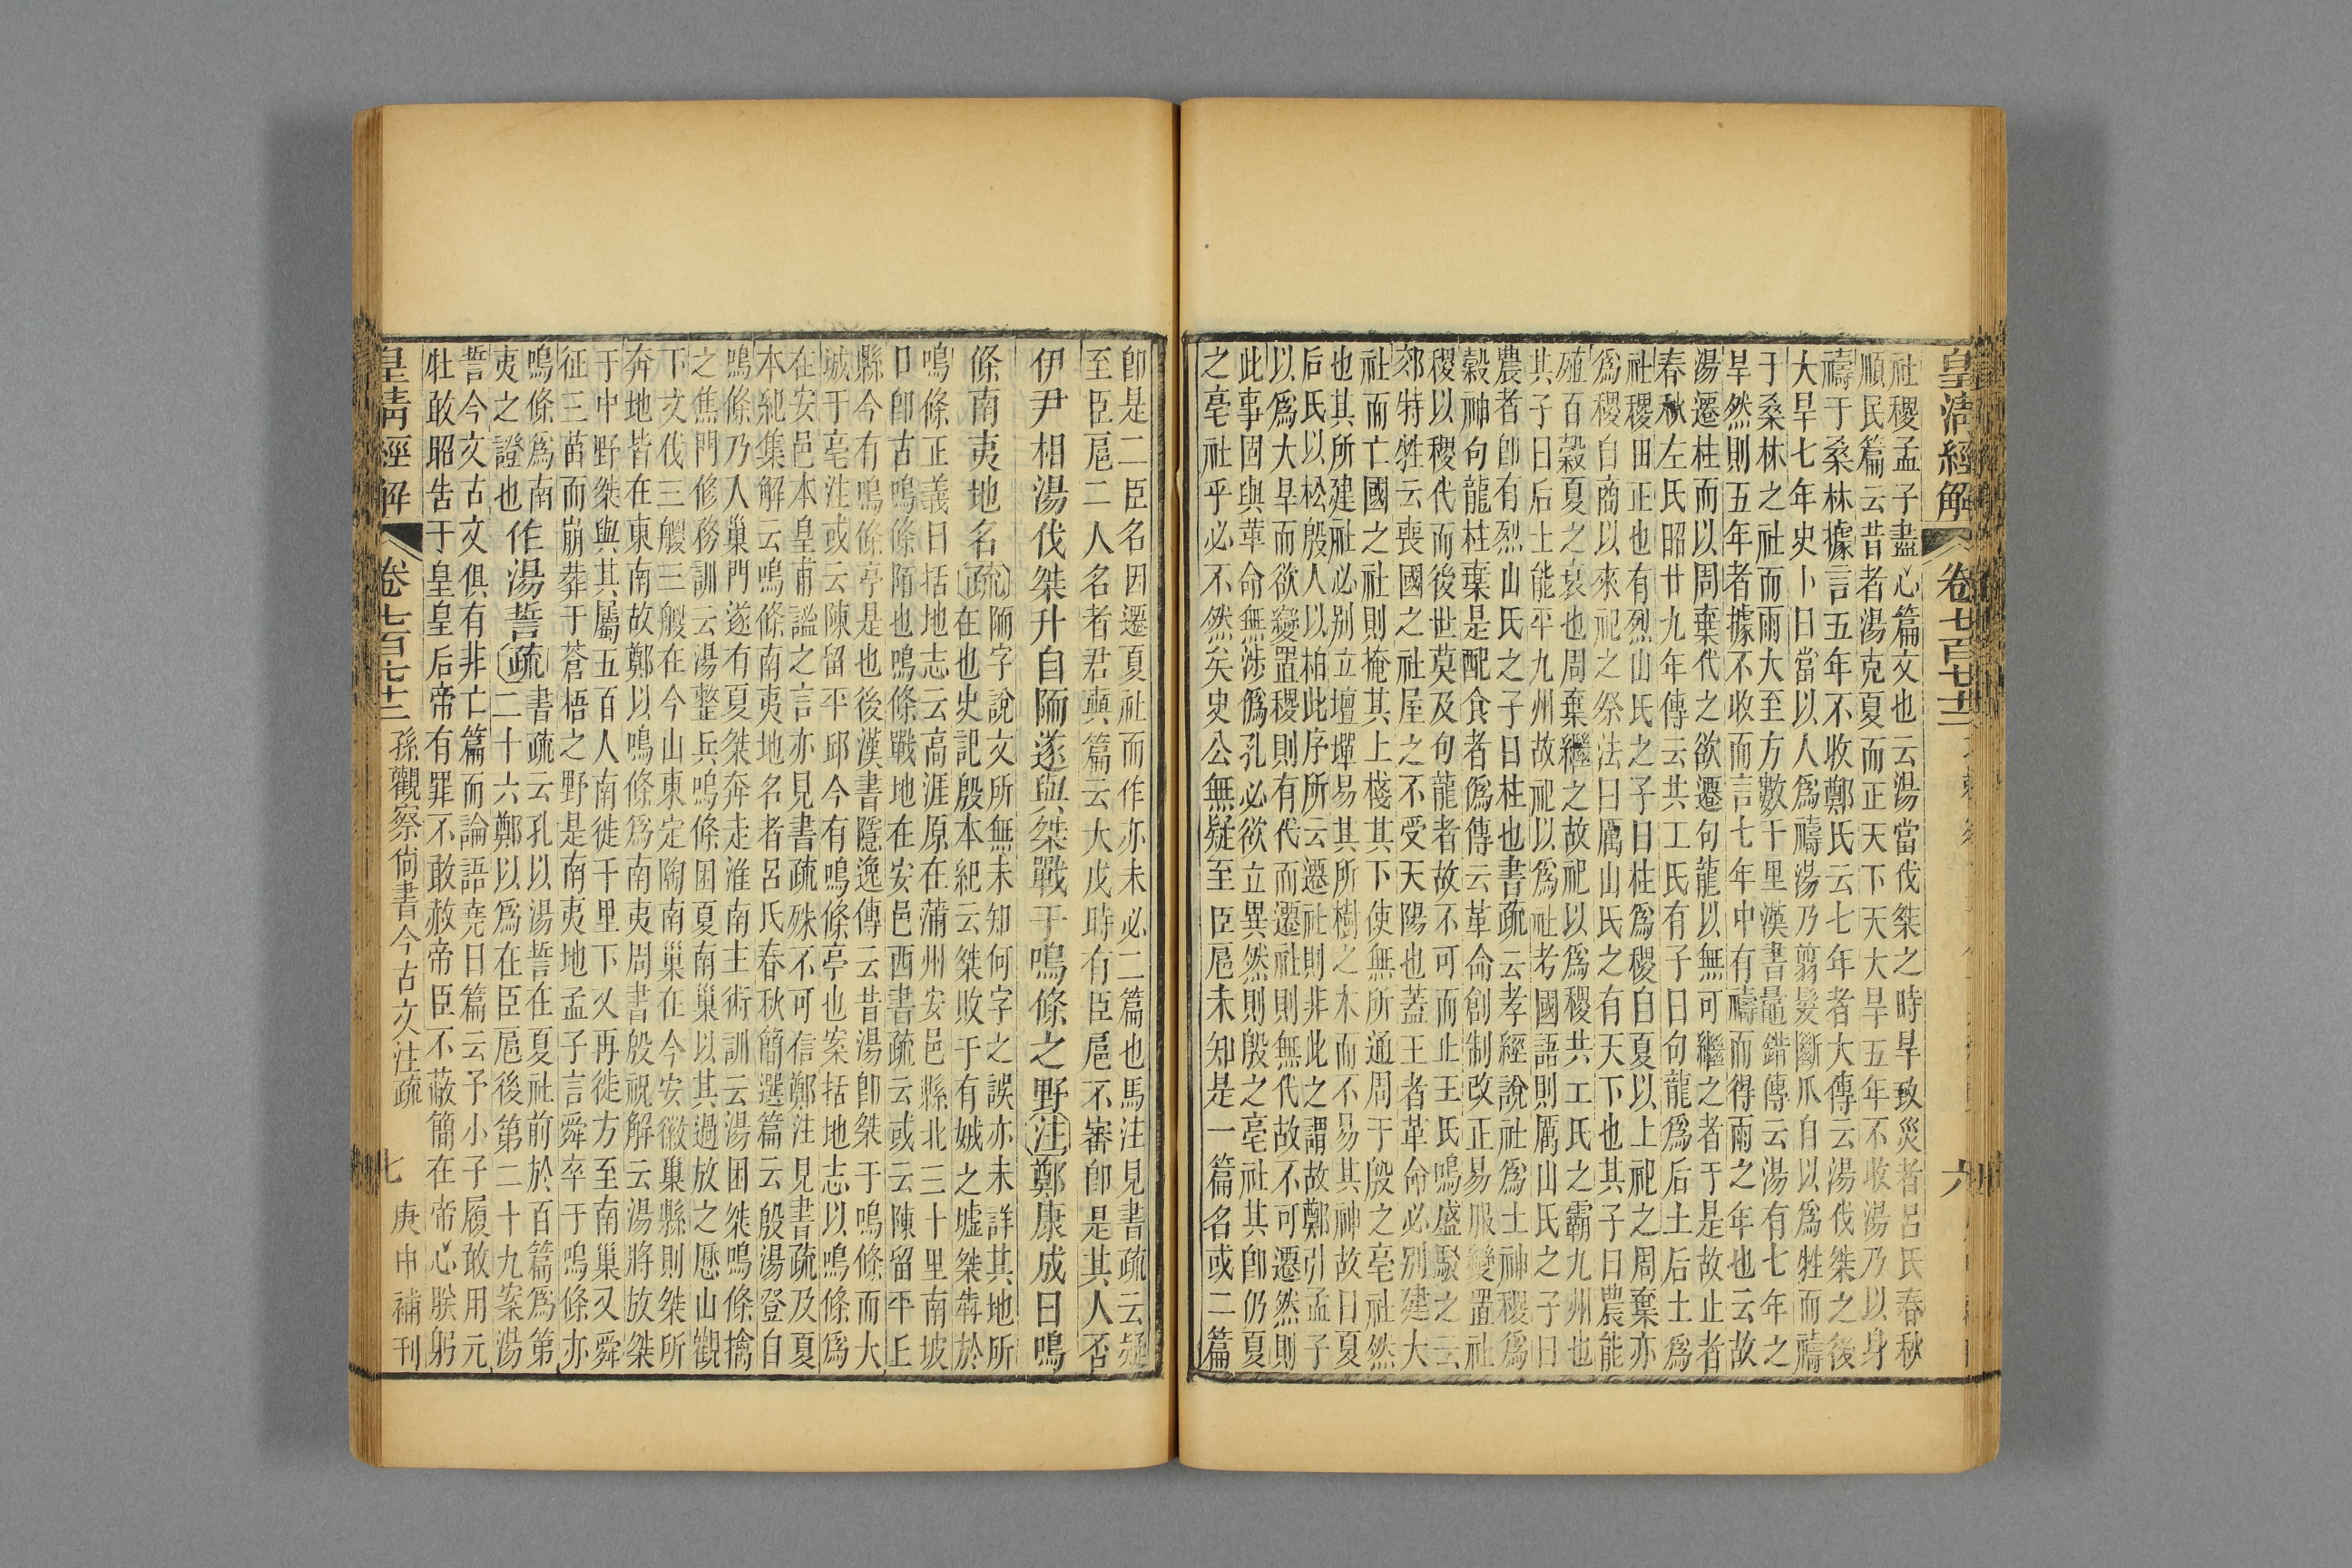 皇清經解 卷七百七十三 六
社稷孟子盡心篇文也云湯當伐桀之時旱致災者呂氏春秋
順民篇云昔者湯克夏而正天下天大旱五年不收湯乃以身
禱于桑林據言五年不收鄭氏云七年者大傳云湯伐桀之後
大旱七年史卜曰當以人爲禱湯乃翦髮斷爪自以爲牲而禱
于桑林之社而雨大至方數千里漢書鼂錯傳云湯有七年之
旱然則五年者據不收而言七年中有禱而得雨之年也云故
湯遷柱而以周棄代之欲遷句龍以無可繼之者于是故止者
春秋左氏昭廿九年傳云共工氏有子曰句龍爲后土后土爲
社稷田正也有烈山氏之子曰柱爲稷自夏以上祀之周棄亦
爲稷自商以來祀之祭法曰厲山氏之有天下也其子曰農能
殖百穀夏之衰也周棄繼之故祀以爲稷共工氏之霸九州也
其子曰后土能平九州故祀以爲社考國語則厲山氏之子曰
農者卽有烈山氏之子曰柱也書疏云孝經說社爲土神稷爲
穀神句龍柱棄是配食者僞傳云革命創制改正易服變置社
稷以稷代而後世莫及句龍者故不可而止王氏鳴盛駁之云
郊特牲云喪國之社屋之不受天陽也蓋王者革命必别建大
社而亡國之社則掩其上棧其下使無所通周于殷之亳社然
也其所建社必别立壇墠易其所樹之木而不易其神故曰夏
后氏以松殷人以柏此序所云遷社則非此之謂故鄭引孟子
以爲大旱而欲變置稷則有代而遷社則無代故不可遷然則
此事固與革命無涉僞孔必欲立異然則殷之亳社其卽仍夏
之亳社乎必不然矣史公無疑至臣扈未知是一篇名或二篇
卽是二臣名因遷夏社而作亦未必二篇也馬注見書疏云疑
至臣扈二人名者君奭篇云大戊時有臣扈不審卽是其人否
伊尹相湯伐桀升自陑遂與桀戰于鳴條之野注鄭康成曰鳴
條南夷地名疏陑字說文所無未知何字之誤亦未詳其地所
在也史記殷本紀云桀敗于有娀之墟桀犇於
鳴條正義曰括地志云高涯原在蒲州安邑縣北三十里南坡
口卽古鳴條陌也鳴條戰地在安邑西書疏云或云陳留平上
縣今有鳴條亭是也後漢書隱逸傳云昔湯卽桀于鳴條而大
城于亳注或云陳留平邱今有鳴條亭也案括地志以鳴條爲
在安邑本皇甫謐之言亦見書疏殊不可信鄭注見書疏及夏
本紀集解云鳴條南夷地名者呂氏春秋簡選篇云殷湯登自
鳴條乃入巢門遂有夏桀奔走淮南主術訓云湯困桀鳴條擒
之焦門修務訓云湯整兵鳴條困夏南巢以其過放之歷山觀
下文伐三朡三朡在今山東定陶南巢在今安徽巢縣則桀所
奔地皆在東南故鄭以鳴條爲南夷周書殷祝解云湯將放桀
于中野桀與其屬五百人南徙千里下又再徙方至南巢又舜
征三苗而崩葬于蒼梧之野是南夷地孟子言舜卒于鳴條亦
鳴條爲南夷之證也作湯誓疏書疏云孔以湯誓在夏社前於百篇爲第
二十六鄭以爲在臣扈後第二十九案湯
誓今文古文俱有非亡篇而論語堯曰篇云予小子履敢用元
牡敢昭告于皇皇后帝有罪不敢赦帝臣不蔽簡在帝心朕躬
皇清經解 卷七百七十三 孫觀察尙書今古文注疏 七 庚申補刊